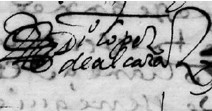 Di^o lopez
de alcara